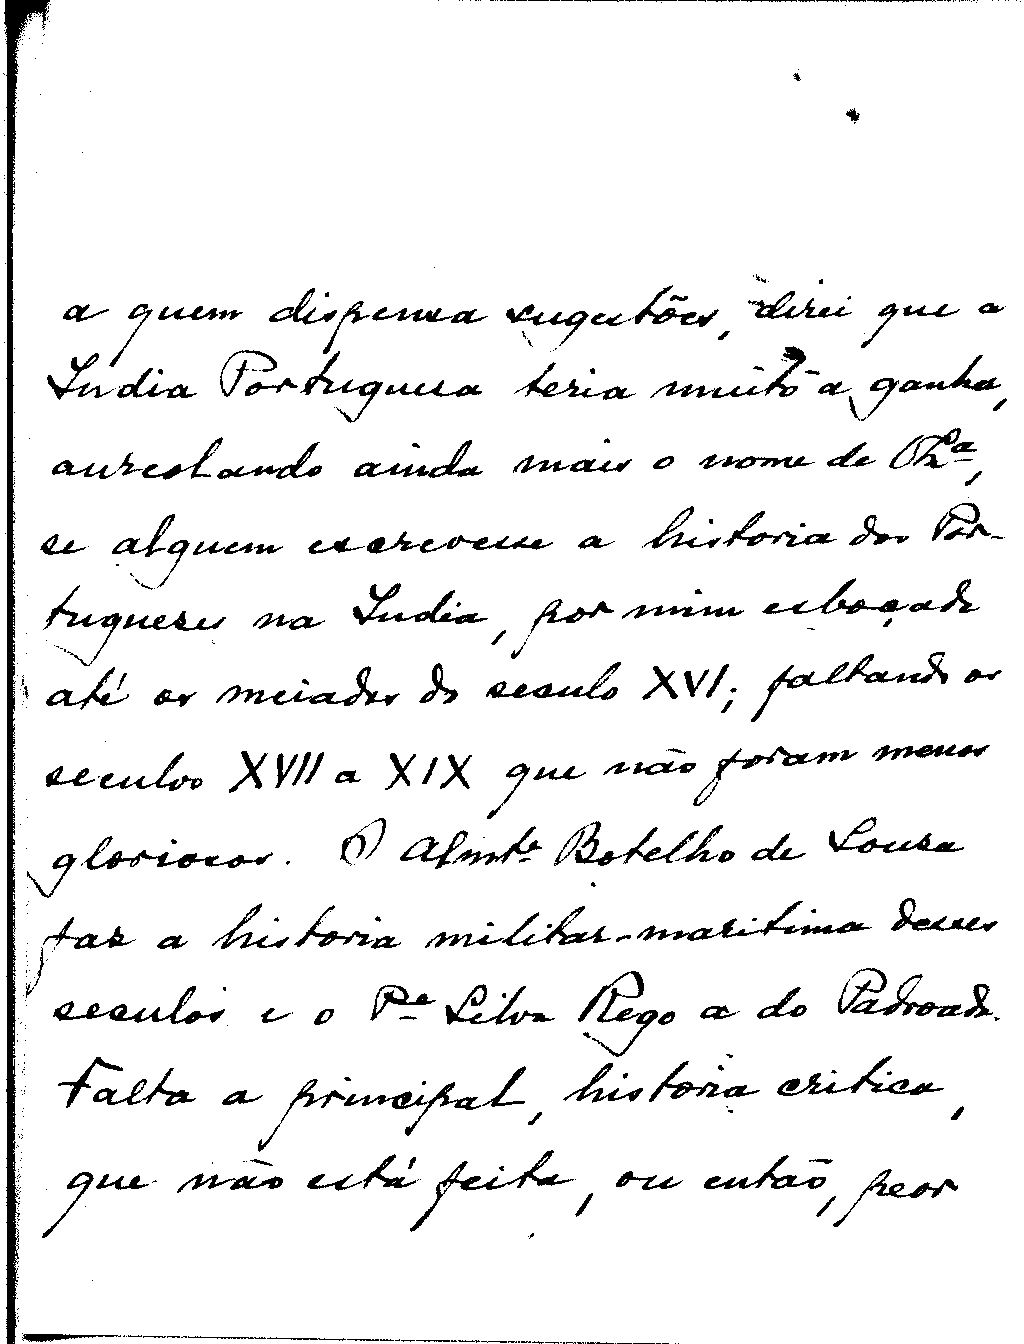 a quem dispensa sugestões, direi que a
India Portuguesa teria muito a ganhar,
aureolando ainda mais o nome de
se alguem escrevesse a historia dos Por-
tugueses na India, por mim esboçada
até os meiados do seculo XVI; faltando os
seculos XVII a XIX que não foram menos
gloriosos. O Almte Botelho de Sousa
faz a historia militar-maritima desses
seculos e o Pe Silva Rego a do Padroado.
Falta a principal, historia critica,
que não está feita, ou então, peor